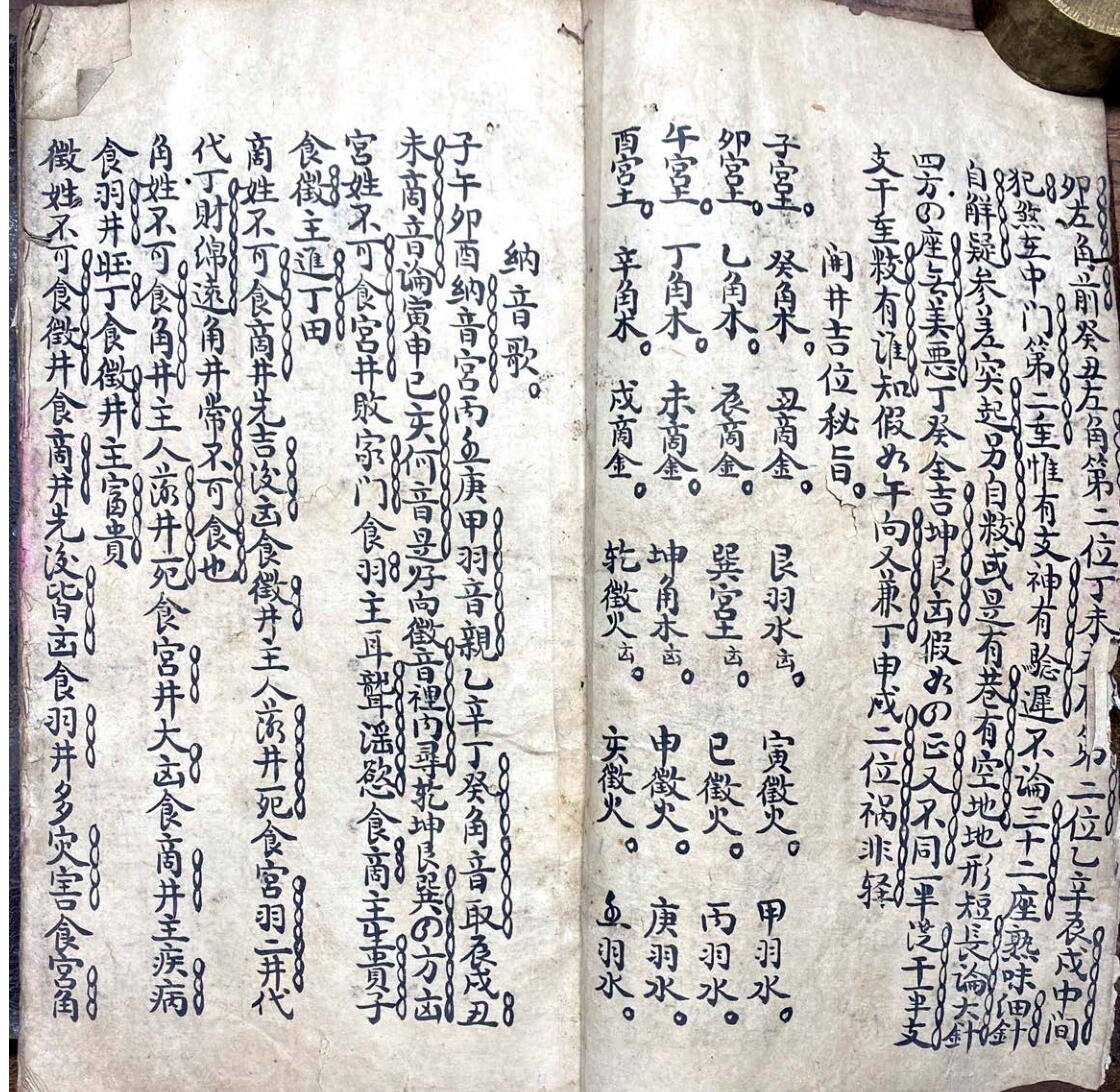 卯左角前癸丑左角第二位丁未卯二位乙辛辰戌中間
犯煞在中门第二重惟有支神有驗遲不論三十二座熟味细針
自解疑参差突起另自粧或是有巷有空地地形短長論大針
四方の座无美悪丁癸全吉坤艮凶假如の正又不同一半従干半支
支干重粧有谁知假如午向又兼丁申戌二位祸非轻
開井吉位秘旨
子宮土 癸角木 丑商金 艮羽水凶 寅徵火 甲羽水
卯宮土 乙角木 辰商金 巽宮土凶 巳徵火 丙羽水
午宮土 丁角木 未商金 坤角木凶 申徵火 庚羽水
酉宮土 辛角木 戌商金 乾徵火凶 亥徵火 壬羽水
納音歌
子午卯酉納音宮丙壬庚甲羽音親乙辛丁癸角音取辰戌丑
未商音論寅申巳亥何音是好向徵音裡内尋乾坤艮巽の方凶
宮姓不可食宮井敗家门食羽主耳聾滛慾食商主生貴子
食徵主進丁田
商姓不可食商井先吉後凶食徵井主人落井死食宮羽二井代
代丁財绵遠角井常不可食也
角姓不可食角井主人落井死食宮井大凶食商井主疾病
食羽井旺丁食徵井主富貴
徵姓不可食徵井食商井先後皆凶食羽井多灾害食宮角